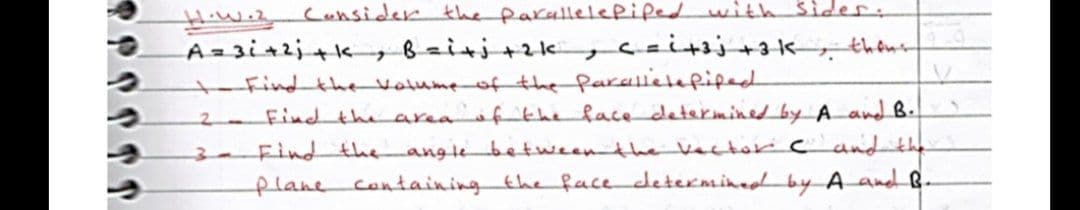 H.W.2 Consider the parallelepiped with sides:
A = 3i +2j + k , B = i+j +2k , c = i+3j +3k , then:
1 - Find the volume of the Parallelepiped
2 - Find the area of the face determined by A and B.
3 - Find the angle between the vector c and the
plane containing the face determined by A and B.